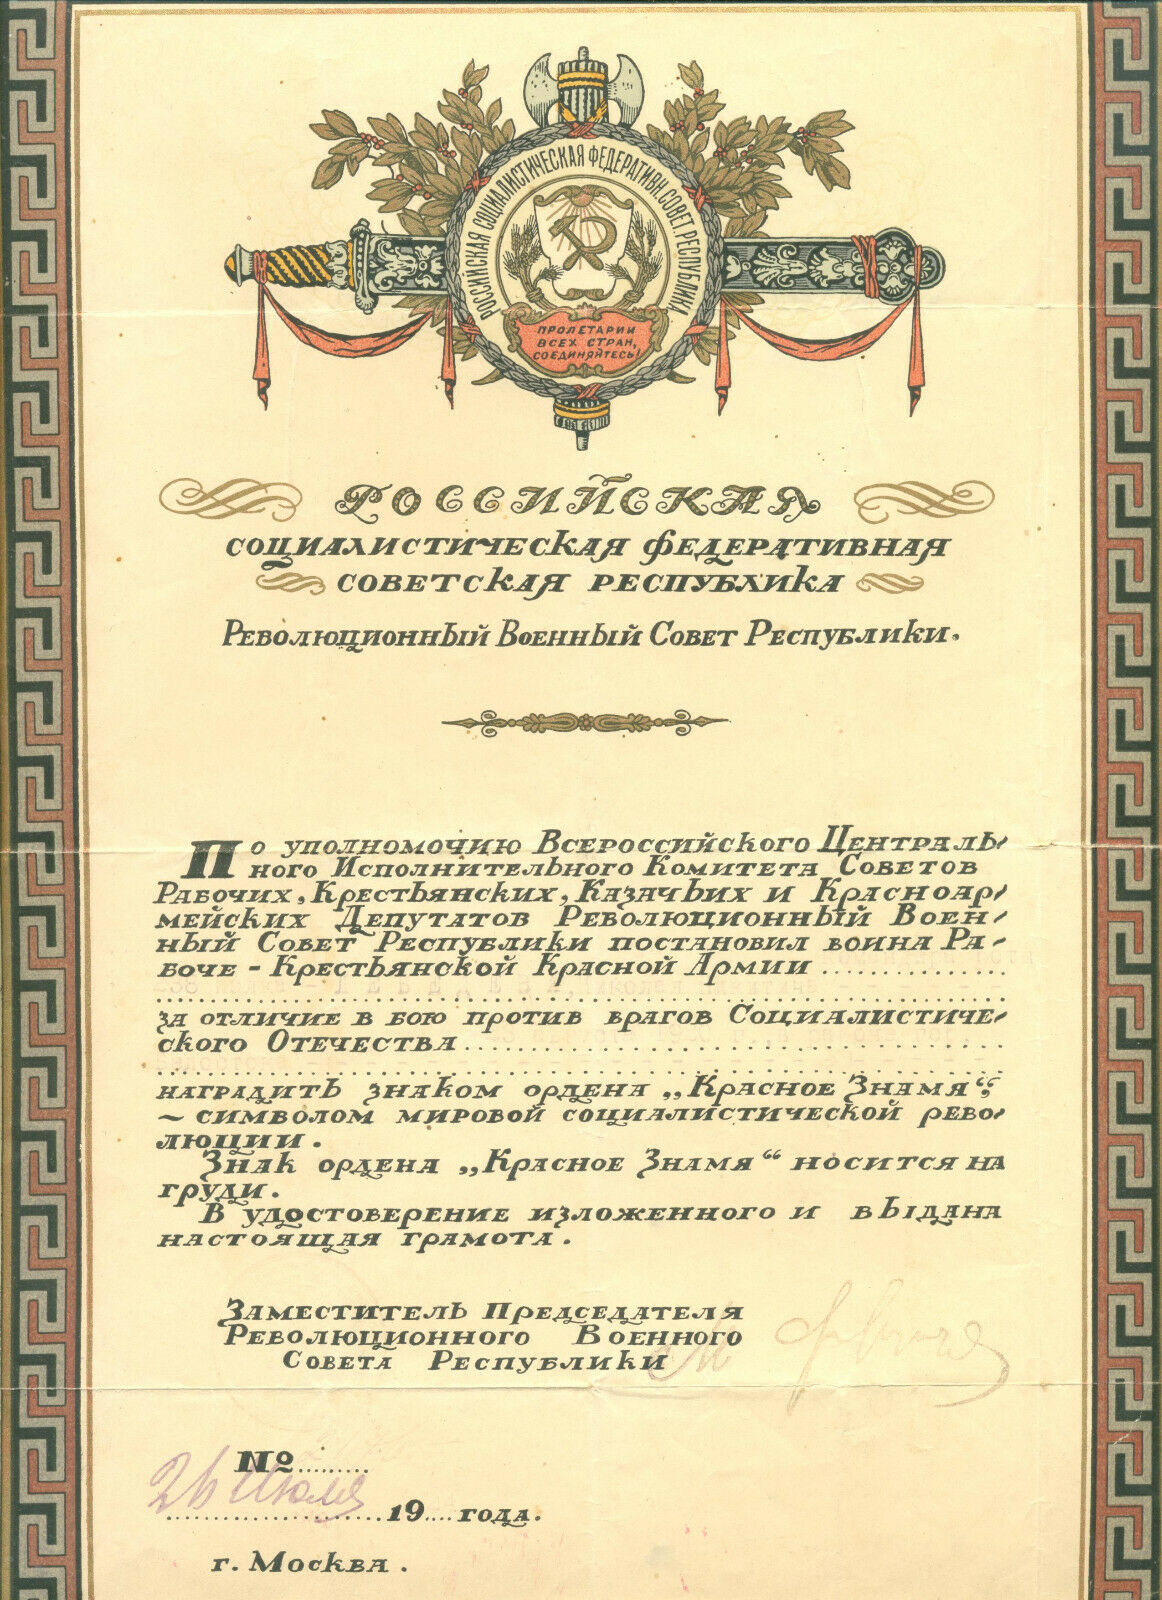 РОССИЙСКАЯ СОЦИАЛИСТИЧЕСКАЯ ФЕДЕРАТИВН СОВЕТ. РЕСПУБЛИКА
ПРОЛЕТАРИИ
ВСЕХ СТРАН,
СОЕДИНЯЙТЕСЬ!
РОССИЙСКАЯ
СОЦИАЛИСТИЧЕСКАЯ ФЕДЕРАТИВНАЯ
СОВЕТСКАЯ РЕСПУБЛИКА
РЕВОЛЮЦИОННЫЙ ВОЕННЫЙ СОВЕТ РЕСПУБЛИКИ.
По уполномочию Всероссийского Централь-
ного Исполнительного Комитета Советов
Рабочих, Крестьянских, Казачьих и Красноар-
мейских Депутатов Революционный Воен-
ный Совет Республики постановил воина Ра-
боче-Крестьянской Красной Армии ..............
за отличие в бою против врагов Социалистиче-
ского Отечества ..............
наградить знаком ордена „Красное Знамя“,
~ символом мировой социалистической рево-
люции.
Знак ордена „Красное Знамя“ носится на
груди.
В удостоверение изложенного и выдана
настоящая грамота.
Заместитель Председателя
Революционного Военного
Совета Республики
№ .........
26 Июля 19.... года.
г. Москва.